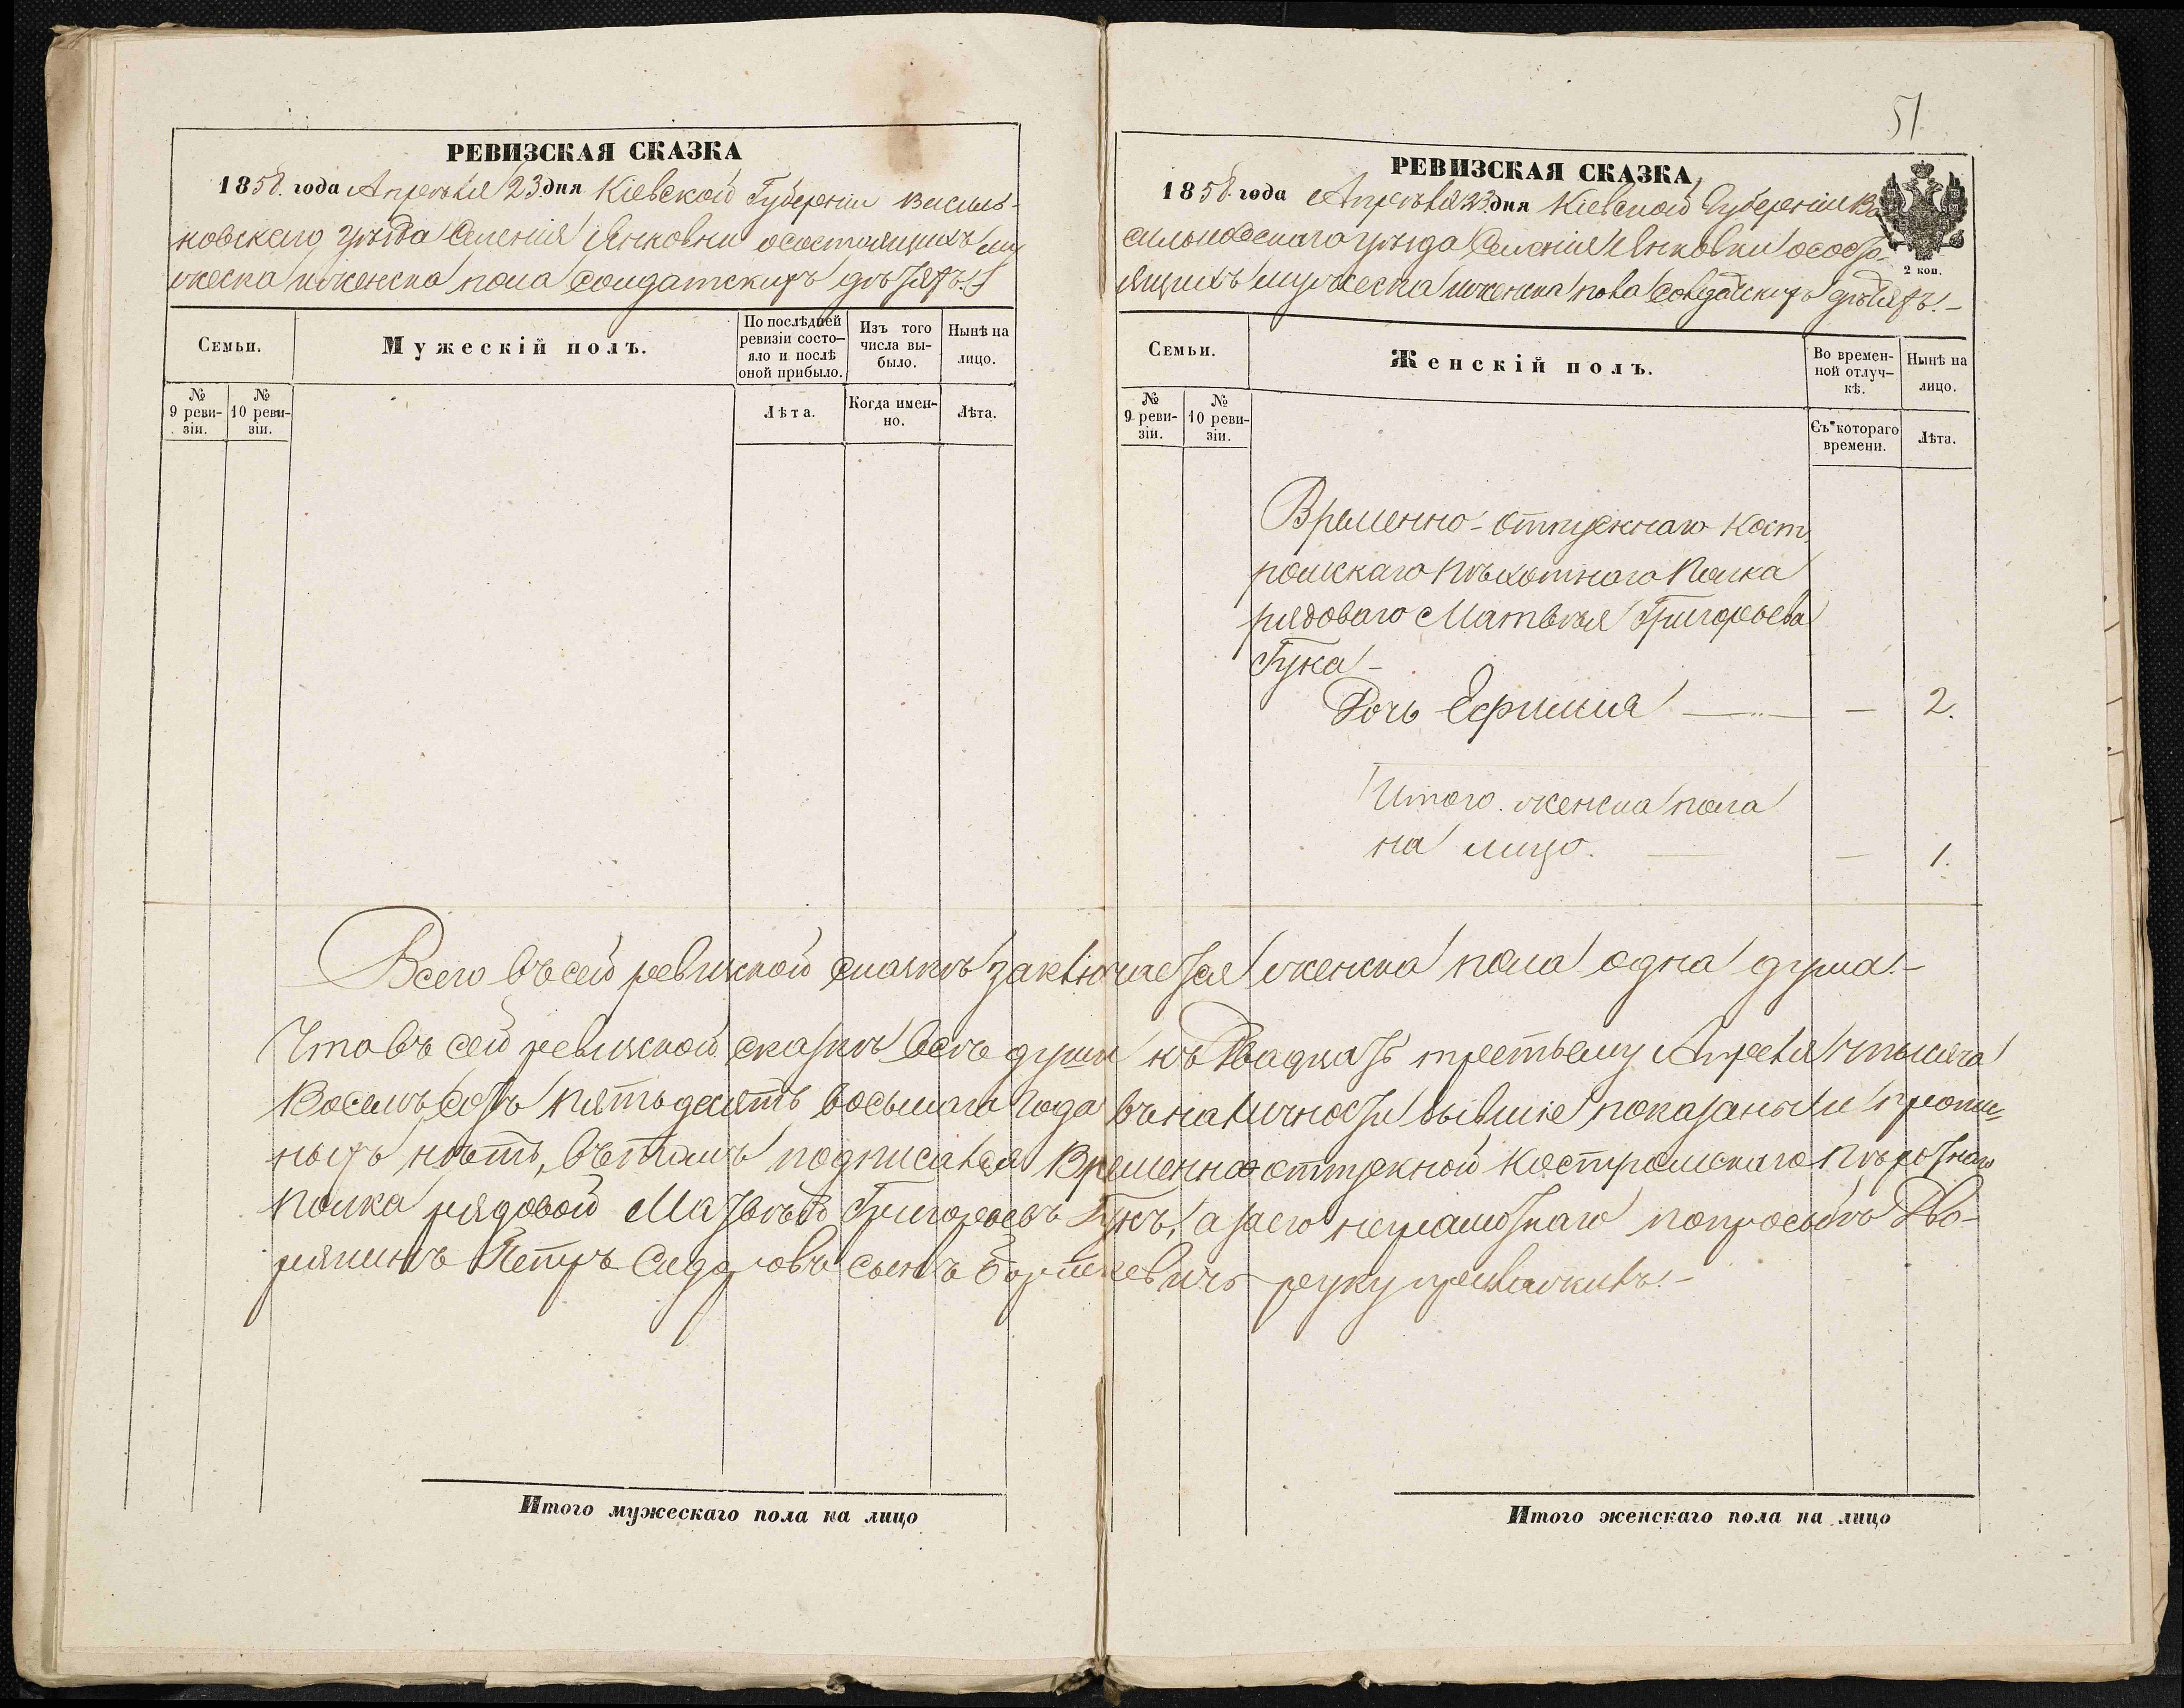 РЕВИЗСКАЯ СКАЗКА
1858. года Апрѣля 23. дня Кіевской Губерніи Василь-
ковскаго уѣзда Селенія Янковки о состоящихъ му
жеска и женска пола солдатскихъ дѣтяхъ.
Семьи.
Мужескій полъ.
По послѣдней ревизіи состо-
яло и послѣ
оной прибыло.
Изъ того
числа вы-
было.
Нынѣ на
лицо.
№
9 реви-
зіи.
№
10 реви-
зіи.
Лѣта.
Когда имен-
но.
Лѣта.
51
РЕВИЗСКАЯ СКАЗКА
1858. года Апрѣля 23 дня Кіевской Губерніи Ва
сильковскаго уѣзда Селенія Янковки о состо-
ящихъ мужеска и женска пола солдатскихъ дѣтяхъ. -
2 коп.
Семьи.
Женскій полъ.
Во времен-
ной отлуч-
кѣ.
Нынѣ на
лицо.
№
9 реви-
зіи.
№
10 реви-
зіи.
Съ котораго
времени.
Лѣта.
Временно-отпускнаго Кост
ромскаго Пѣхотнаго Полка
рядоваго Матвѣя Григорьева
Гука -
Дочь Ефимия — — 2.
Итого женска пола
на лицо. — — 1.
Всего въ сей ревизской сказкѣ заключается женска пола одна душа. -
Что въ сей ревизской сказкѣ всѣ души къ Двадцать третьему Апреля тысяча
Восемь сотъ пятьдесятъ восьмаго года въ наличности бывшие показаны и
нѣтъ, въ томъ подписался Временно отпускной Костромскаго Пѣхотнаго
полка рядовой Матвѣй Григорьевъ Гукъ, а за его неграмотнаго по просьбѣ Дво-
рянинъ Петръ сынъ руку приложилъ. -
Итого мужескаго пола на лицо
Итого женскаго пола на лицо